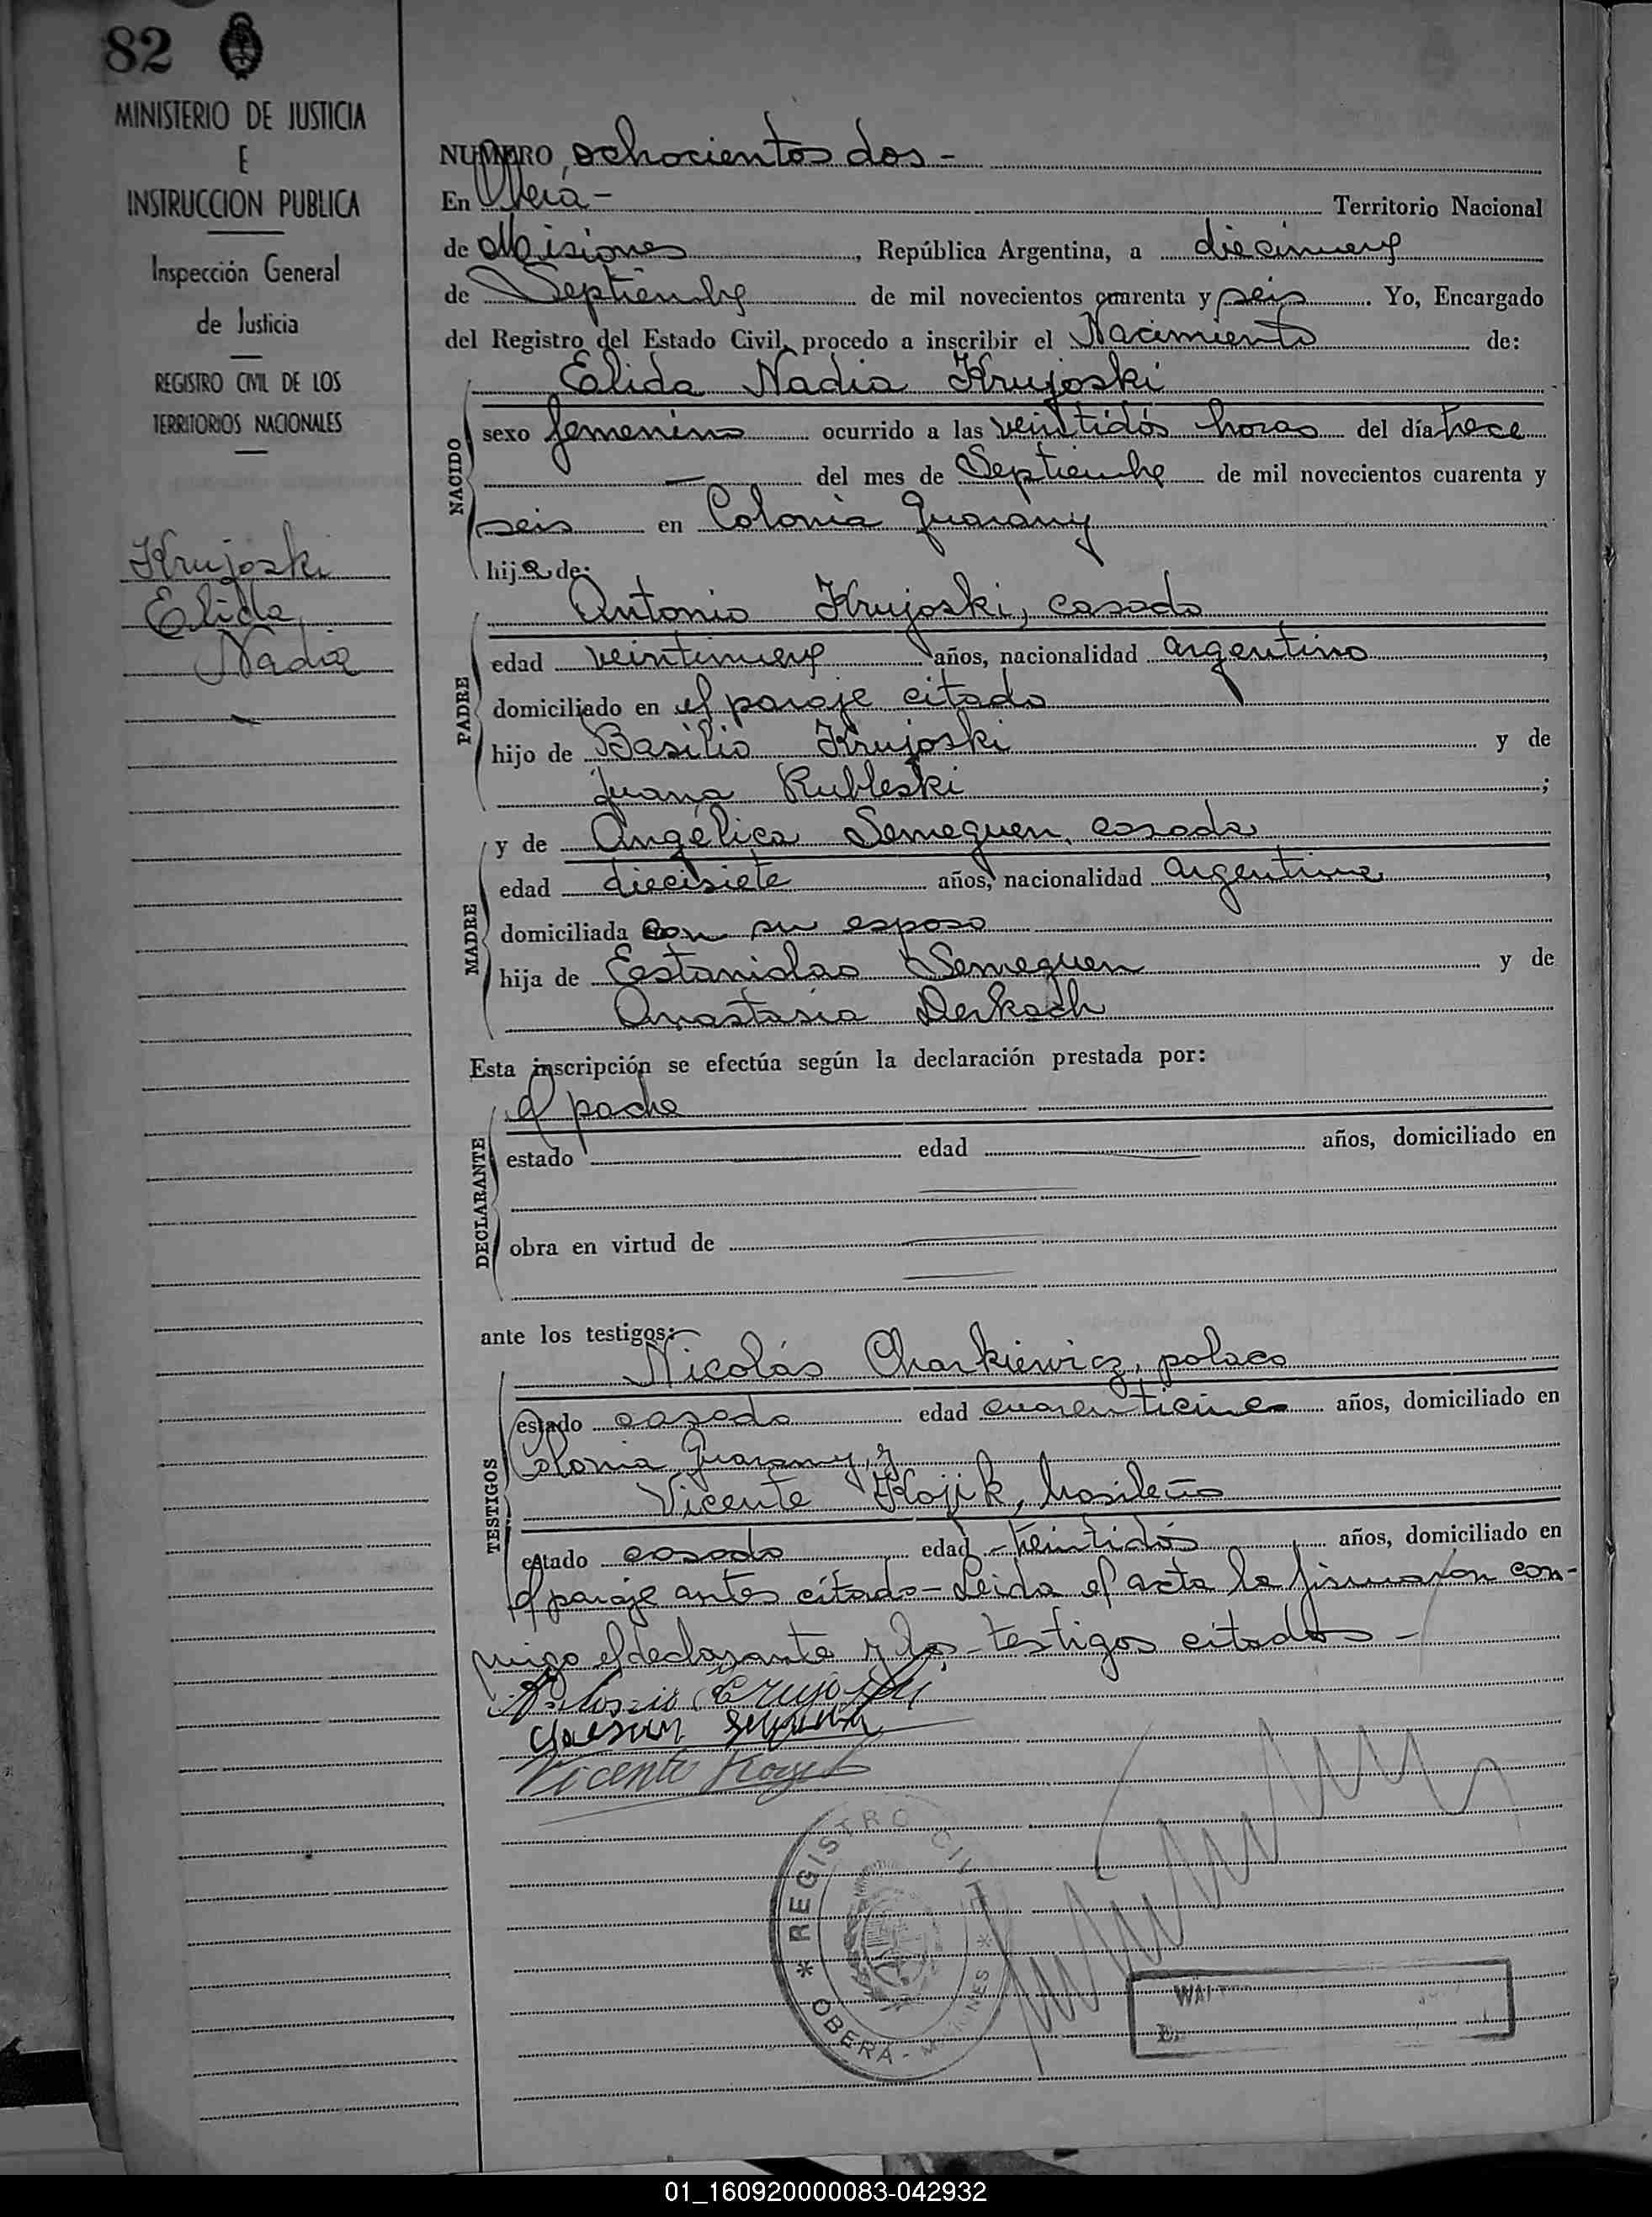 82
MINISTERIO DE JUSTICIA
E
INSTRUCCION PUBLICA
Inspección General
de Justicia
REGISTRO CIVIL DE LOS
TERRITORIOS NACIONALES
Krujoski
Elida
Nadia
NUMERO ochocientos dos -
En Oberá - Territorio Nacional
de Misiones, República Argentina, a diecinueve
de Septiembre de mil novecientos cuarenta y seis. Yo, Encargado
del Registro del Estado Civil, procedo a inscribir el Nacimiento de:
Elida Nadia Krujoski
NACIDO
sexo femenino ocurrido a las veintidós horas del día trece
— del mes de Septiembre de mil novecientos cuarenta y
seis en Colonia Guarany
hija de:
Antonio Krujoski, casado
PADRE
edad veintinueve años, nacionalidad argentino,
domiciliado en el paraje citado
hijo de Basilio Krujoski y de
Juana Rubleski;
y de Angélica Semeguen, casada
MADRE
edad diecisiete años, nacionalidad argentina,
domiciliada con su esposo
hija de Estanislao Semeguen y de
Anastasia Derkach
Esta inscripción se efectúa según la declaración prestada por:
el padre
DECLARANTE
estado — edad — años, domiciliado en
—
obra en virtud de —
—
ante los testigos:
Nicolás Charkiewicz, polaco
TESTIGOS
estado casado edad cuarenticinco años, domiciliado en
Colonia Guarany, y
Vicente Kojik, brasileño
estado casado edad treintidós años, domiciliado en
el paraje antes citado - Leida el acta la firmaron con-
migo el declarante y los testigos citados -
Vicente
* REGISTRO CIVIL * OBERA - MISIONES
WALT
01_160920000083-042932